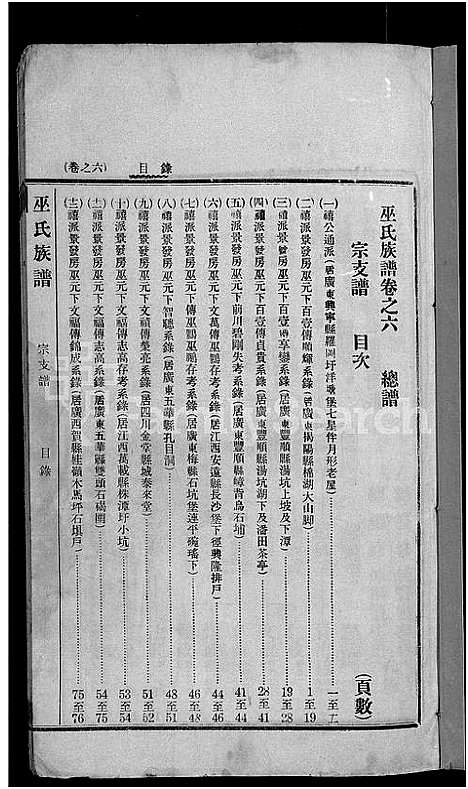 巫氏族譜卷之六 總譜
宗支譜 目次 (頁數)
(一)禧公通派(居廣東興寧縣羅岡圩洋墩堡七星伴月形老屋) 一至二
(二)禧派景發房巫元下百壹傳順輝系錄(居廣東揭陽縣棉湖大山脚) 1至19
(三)禧派景發房巫元下百壹傳享鑾系錄(居廣東豐順縣湯坑上坡及下潭) 19至28
(四)禧派景發房巫元下百壹傳貞貴系錄(居廣東豐順縣湯坑湖下及潘田茶亭) 28至41
(五)禧派景發房巫元下前川碧剛失考系錄(居廣東豐順縣嶂背烏石埔) 41至44
(六)禧派景發房巫元下文萬傳巫鸭存考系錄(居江西安遠縣長沙堡下徑興隆排戶) 44至46
(七)禧派景發房巫元下傳巫鸭存考系錄(居廣東梅縣石坑堡連平碗瑤下) 46至48
(八)禧派景發房巫元下智聰系錄(居廣東五華縣孔目洞) 48至51
(九)禧派景發房巫元下文禎傳榮亮系錄(居四川金堂縣城泰來堂) 51至52
(十)禧派景發房巫元下文福傳志高存考系錄(居江西萬載縣株潭圩小坑) 53至54
(十一)禧派景發房巫元下文福傳志高系錄(居廣東五華縣雙頭石碣圍) 54至75
(十二)禧派景發房巫元下文福傳錦成系錄(居廣西賀縣桂嶺木馬坪石垻戶) 75至76
(卷之六) 目錄
巫氏族譜 宗支譜 目錄